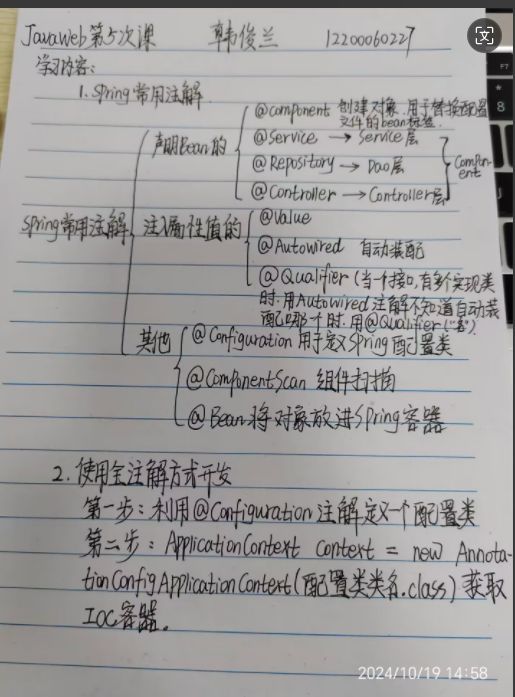 Javaweb第5次课 韩俊兰 1220060227
学习内容：
1. Spring常用注解
Spring常用注解
声明Bean的
@Component 创建对象，用于替换配置
文件的bean标签.
@Service → Service层
@Repository → Dao层
@Controller → Controller层
Component
注入属性值的
@Value
@Autowired 自动装配
@Qualifier (当一个接口,有多个实现类
时.用Autowired注解不知道自动装
配哪一个时.用@Qualifier("名")
其他
@Configuration 用于定义Spring配置类
@ComponentScan 组件扫描
@Bean 将对象放进Spring容器
2. 使用全注解方式开发
第一步：利用@Configuration注解定义一个配置类
第二步：ApplicationContext context = new Annota-
tionConfigApplicationContext(配置类类名.class) 获取
IOC容器.
2024/10/19 14:58
F7
*
8